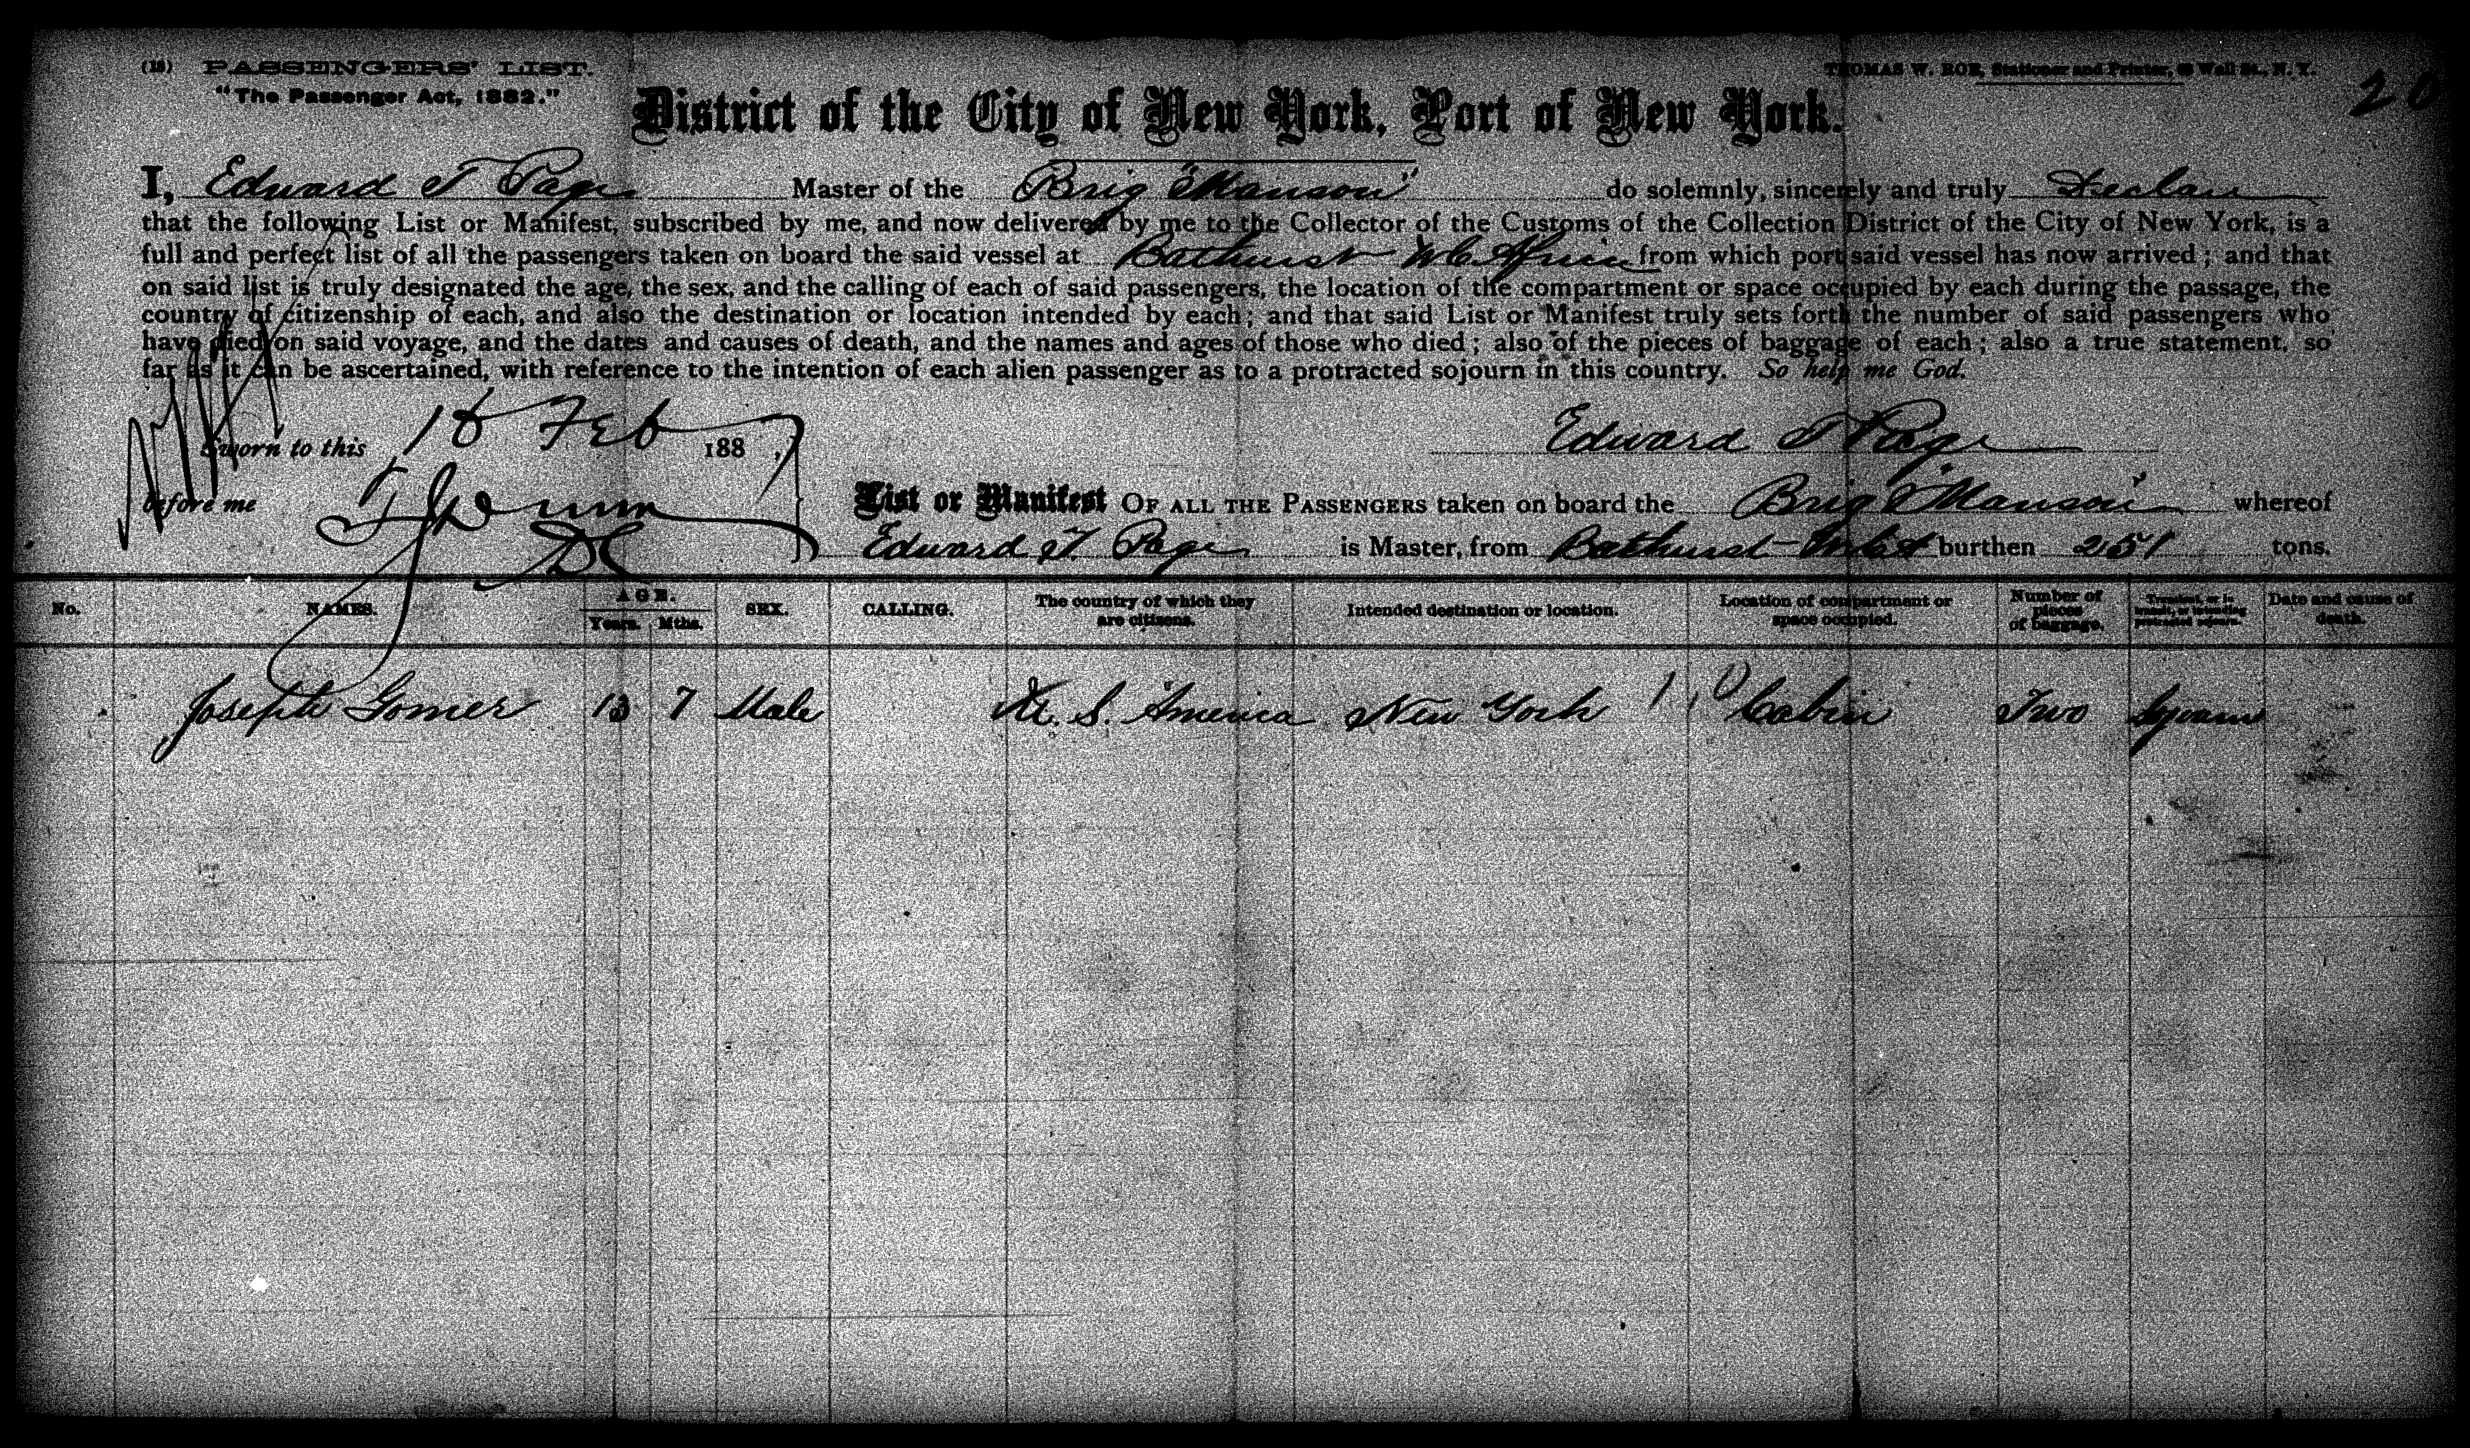 (18) PASSENGERS' LIST.
"The Passenger Act, 1882."
THOMAS W. ROE, Stationer and Printer, Wall St., N. Y.
20
District of the City of New York, Port of New York.
I, Edward T Page Master of the Brig "Manson" do solemnly, sincerely and truly Declare
that the following List or Manifest, subscribed by me, and now delivered by me to the Collector of the Customs of the Collection District of the City of New York, is a
full and perfect list of all the passengers taken on board the said vessel at Bathurst W C Africa from which port said vessel has now arrived; and that
on said list is truly designated the age, the sex, and the calling of each of said passengers, the location of the compartment or space occupied by each during the passage, the
country of citizenship of each, and also the destination or location intended by each; and that said List or Manifest truly sets forth the number of said passengers who
have died on said voyage, and the dates and causes of death, and the names and ages of those who died; also of the pieces of baggage of each; also a true statement, so
far as it can be ascertained, with reference to the intention of each alien passenger as to a protracted sojourn in this country. So help me God.
Sworn to this 18 Feb 188 , Edward T Page
before me
List or Manifest OF ALL THE PASSENGERS taken on board the Brig "Manson" whereof
Edward T. Page is Master, from Bathurst burthen 251 tons.
No. NAMES. AGE. Years. Mths. SEX. CALLING. The country of which they are citizens. Intended destination or location. Location of compartment or space occupied. Number of pieces of baggage. Transient, or in transit, or intending protracted sojourn. Date and cause of death.
Joseph Gomer 13 7 Male U. S. America New York Cabin Two Sojourn